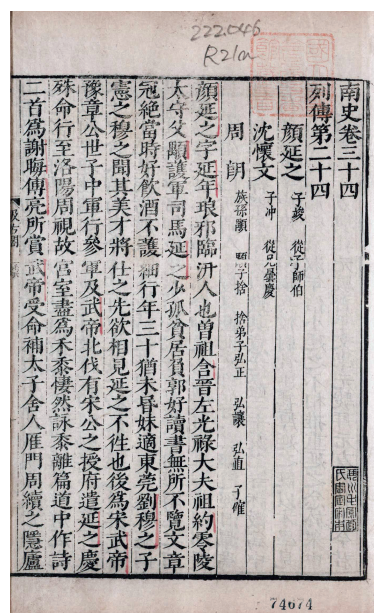 222.046
R21a
南史卷三十四
列傳第二十四
顔延之 子竣 從子師伯
沈懷文 子冲 從兄曇慶
周朗 族孫顒 顒子捨 捨弟子弘正 弘讓 弘直 子確
顔延之字延年琅邪臨沂人也曾祖含晉左光祿大夫祖約零陵
太守父顒護軍司馬延之少孤貧居負郭好讀書無所不覽文章
冠絶當時好飲酒不護細行年三十猶未昏妹適東莞劉穆之子
憲之穆之聞其美才將仕之先欲相見延之不徃也後爲宋武帝
豫章公世子中軍行參軍及武帝北伐有宋公之授府遣延之慶
殊命行至洛陽周視故宫室盡爲禾黍悽然詠黍離篇道中作詩
二首爲謝晦傅亮所賞武帝受命補太子舍人雁門周續之隱廬
汲古閣
74674